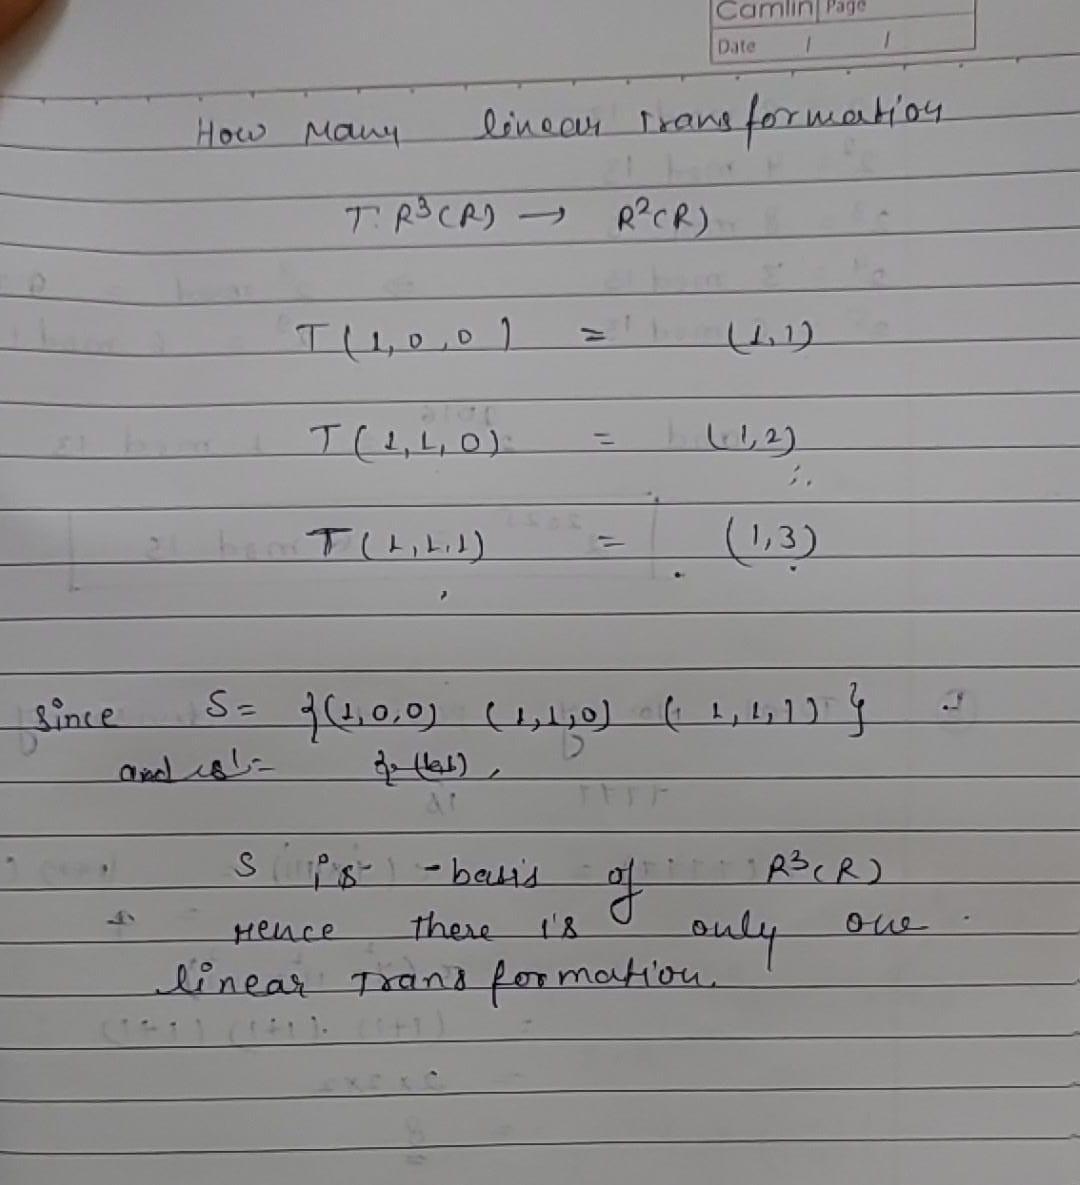 Camlin Page
Date / /
How Many linear Transformation
T: R³(R) → R²(R)
T(1,0,0) = (1,1)
T(1,1,0) = (1,2)
T(1,1,1) = (1,3)
Since S= {(1,0,0) (1,1,0) (1,1,1)}
and
S is basis of R³(R)
Hence there is only one
linear Transformation.